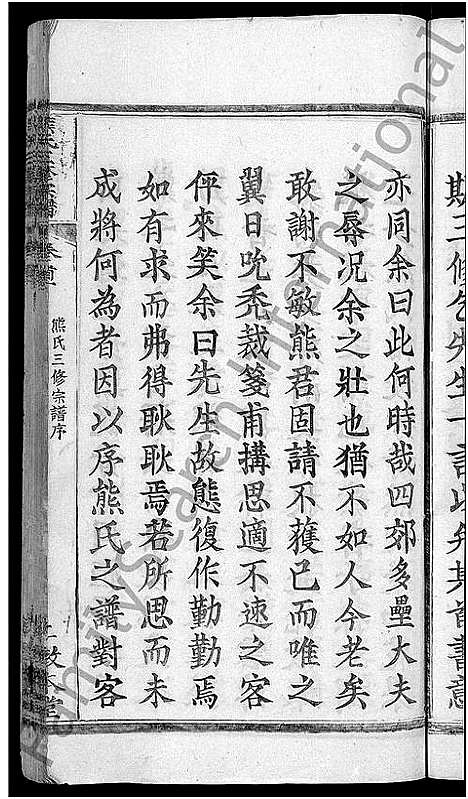 期三修乞先生一言以弁其首書意
亦同余曰此何時哉四郊多壘大夫
之辱况余之壯也猶不如人今老矣
敢謝不敏熊君固請不獲已而唯之
翼日吮禿裁箋甫搆思適不速之客
伻來笑余曰先生故態復作勤勤焉
如有求而弗得耿耿焉若所思而未
成將何為者因以序熊氏之譜對客
熊氏三修宗譜 卷首
熊氏三修宗譜序
敦本堂
FamilySearch International